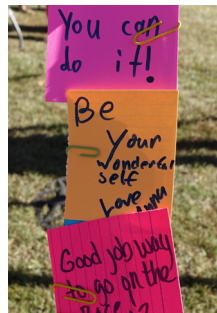 You can
do it!
Be
Your
Wonderful
self
Love
Good job way
to go on the